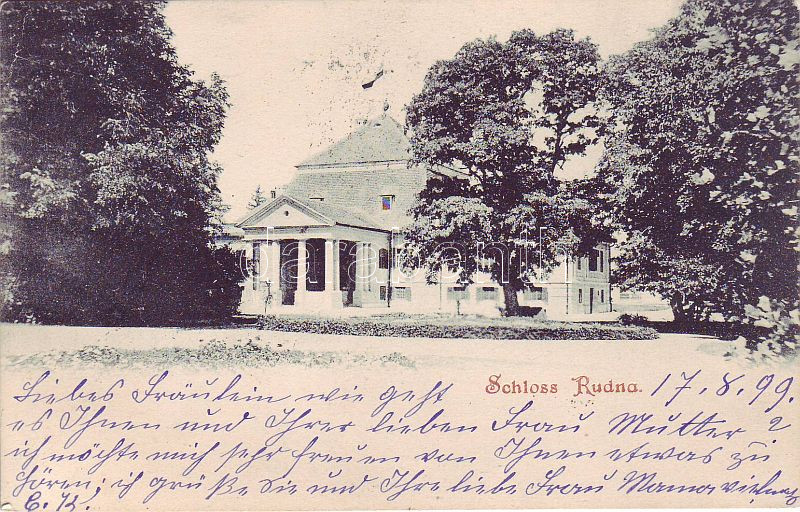 darabanth
Schloss Rudna. 17.8.99.
Liebes Fräulein wie geht
es Ihnen und Ihrer lieben Frau Mutter?
ich möchte mich sehr freuen von Ihnen etwas zu
hören; ich grüße Sie und Ihre liebe Frau Mama vielmals
C. K.